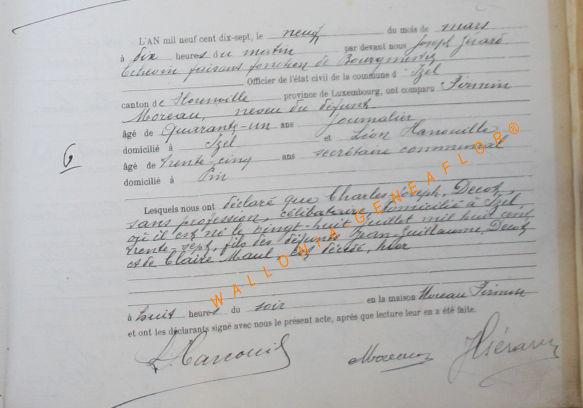 L'AN mil neuf cent dix-sept, le neuf du mois de mars
à dix heures du matin par devant nous Joseph
Echevin faisant fonction de Bourgmestre
Officier de l'état civil de la commune d'Izel
canton de Florenville province de Luxembourg, ont comparu Firmin
Moreau, neveu du défunt
âgé de Quarante-un ans Journalier
domicilié à Izel et Léon Hanouille
6
âgé de trente-cinq ans secrétaire communal
domicilié à Pin
Lesquels nous ont déclaré que Charles-Joseph, Decoz,
sans profession, célibataire, domicilié à Izel,
où il est né le vingt-huit Juillet mil huit cent
trente-sept, fils des défunts Jean-Guillaume, Decoz
et de Claire Maul, est décédé, hier
à huit heures du soir en la maison Moreau Firmin
et ont les déclarants signé avec nous le présent acte, après que lecture leur en a été faite.
L. Hanouille Moreau
WALLONIA@GENEAFLOR®